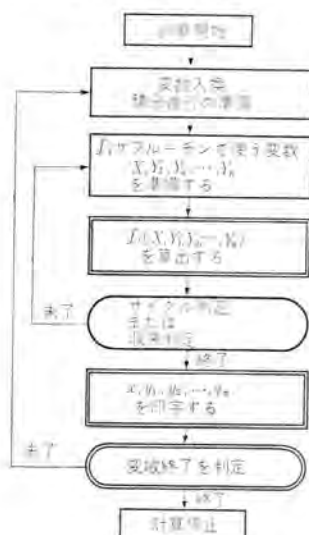 計算開始
変数入換
積分進行の準備
fiサブルーチンで使う変数
X, Y₁, Y₂, …, Yₙ
を準備する
fi(X, Y₁, Y₂, …, Yₙ)
を算出する
サイクル判定
または
収束判定
未了
終了
x, y₁, y₂, …, yₙ
を印字する
未了
変域終了を判定
終了
計算停止